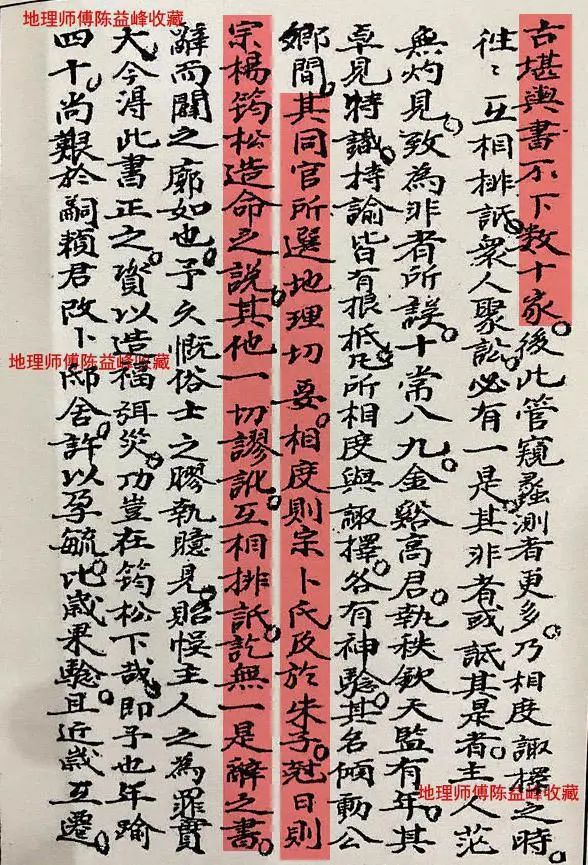 地理师傅陈益峰收藏
古堪輿書不下数十家。後此管窺蠡測者更多。乃相度諏擇之時。
徃〻互相排詆。衆人聚訟。必有一是。其非者或詆其是者。主人茫
無灼見。致為非者所誤。十常八九。金谿高君。執秩欽天監有年。其
卓見特識。持諭皆有根柢。凡所相度與諏擇。各有神驗。其名傾動公
鄉間。其同官所選地理切要。相度則宗卜氏及於朱子。尅日則
宗楊筠松造命之說。其他一切謬訛。互相排詆。訖無一是。辭之書。
辭而闢之廓如也。予久慨俗士之膠執臆見。貽悮主人之為罪實
大。今淂此書正之。資以造福弭災。功豈在筠松下哉。即予也年踰
四十。尚艱於嗣。賴君改卜邸舍。許以孕毓。比歲果驗。且近歲互遷。
地理师傅陈益峰收藏
地理师傅陈益峰收藏